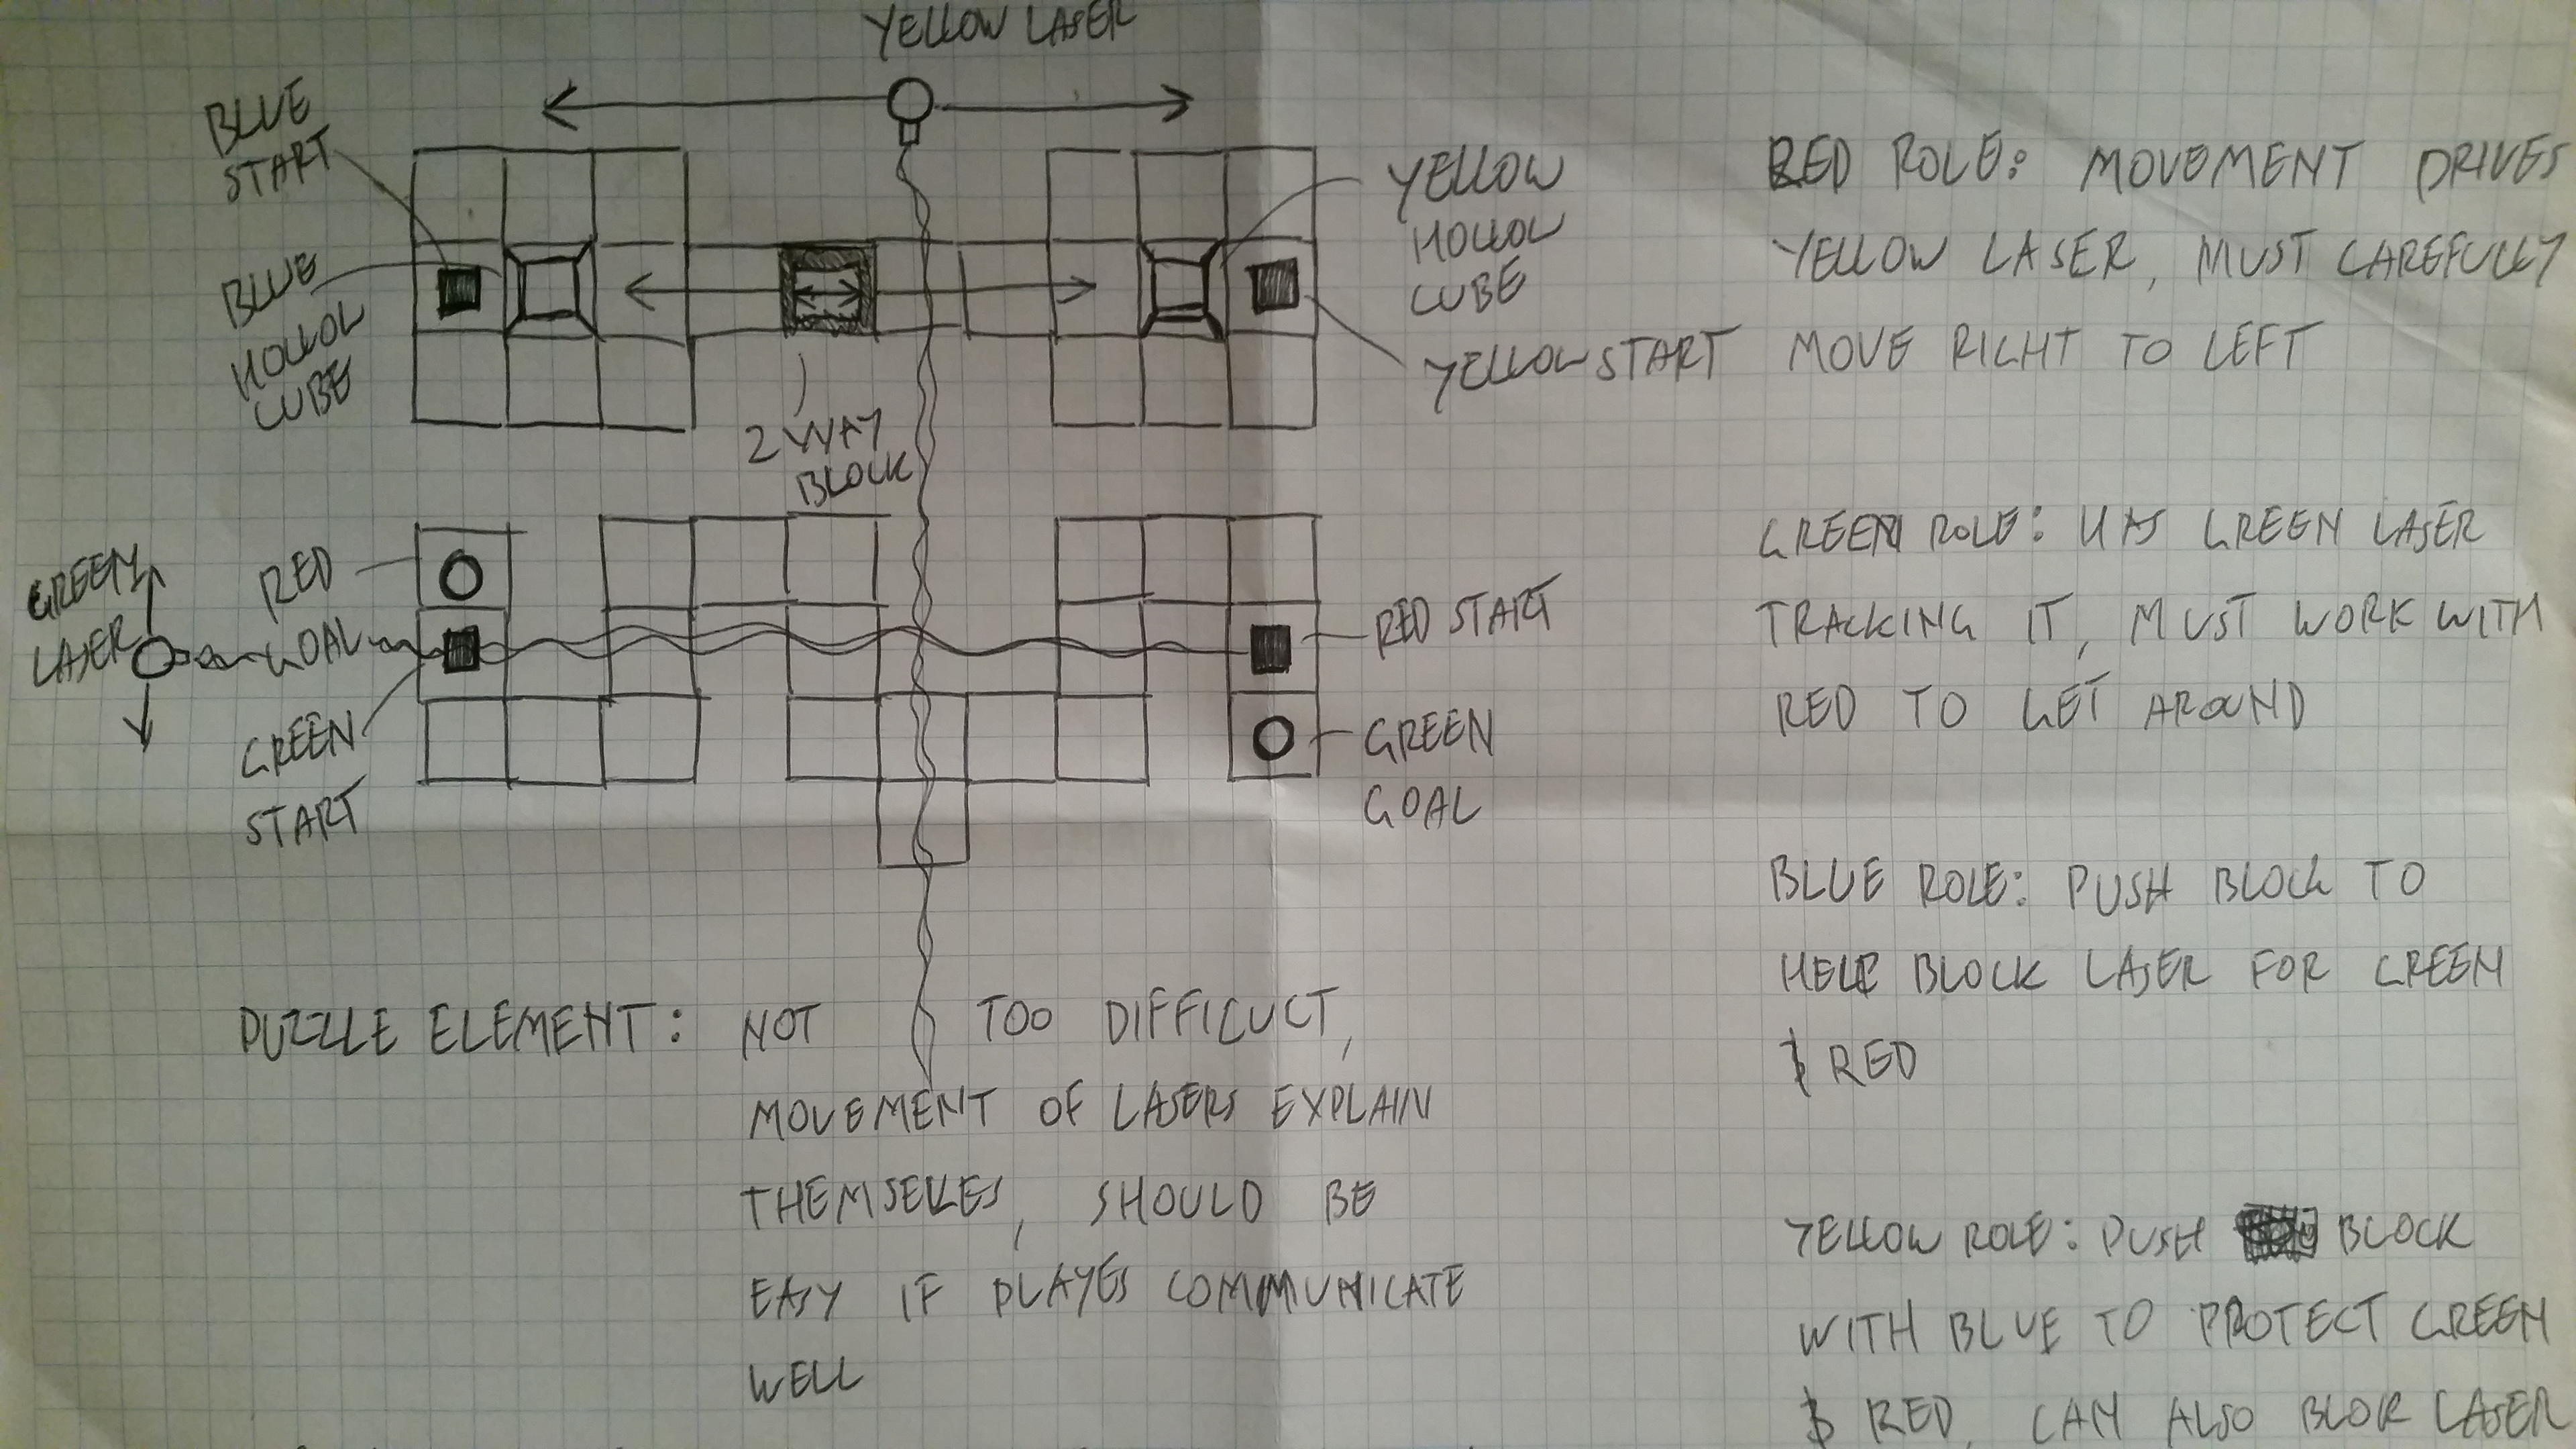 YELLOW LASER
BLUE
START
BLUE
HOLLOW
CUBE
YELLOW
HOLLOW
CUBE
YELLOW START
2 WAY
BLOCK
GREEN
LASER
RED
GOAL
GREEN
START
RED START
GREEN
GOAL
PUZZLE ELEMENT: NOT TOO DIFFICULT,
MOVEMENT OF LASERS EXPLAIN
THEMSELVES, SHOULD BE
EASY IF PLAYES COMMUNICATE
WELL
RED ROLE: MOVEMENT DRIVES
YELLOW LASER, MUST CAREFULLY
MOVE RIGHT TO LEFT
GREEN ROLE: HAS GREEN LASER
TRACKING IT, MUST WORK WITH
RED TO GET AROUND
BLUE ROLE: PUSH BLOCK TO
HELP BLOCK LASER FOR GREEN
& RED
YELLOW ROLE: PUSH BLOCK
WITH BLUE TO PROTECT GREEN
& RED, CAN ALSO BLOCK LASER